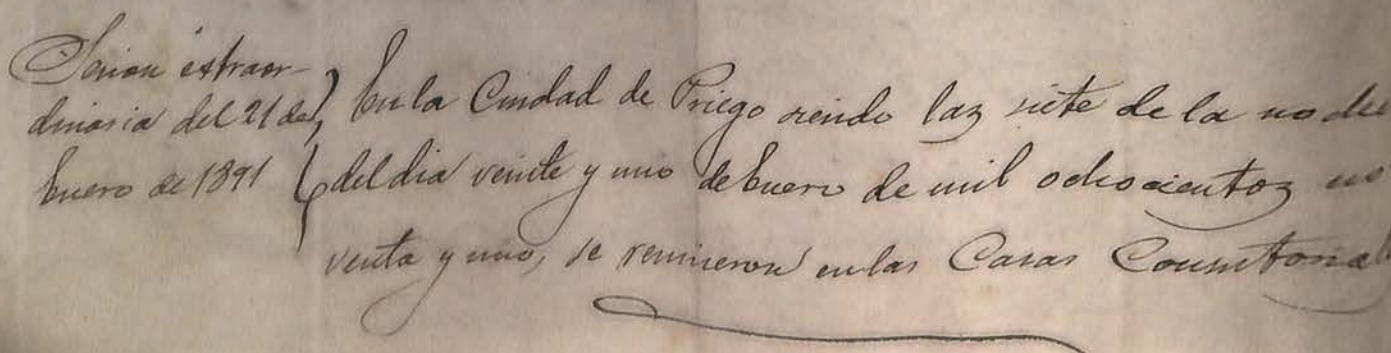 Sesion extraor-
dinaria del 21 de
Enero de 1891
En la Ciudad de Priego siendo las siete de la noche
del dia veinte y uno de Enero de mil ochocientos no
venta y uno, se reunieron en las Casas Consistorial